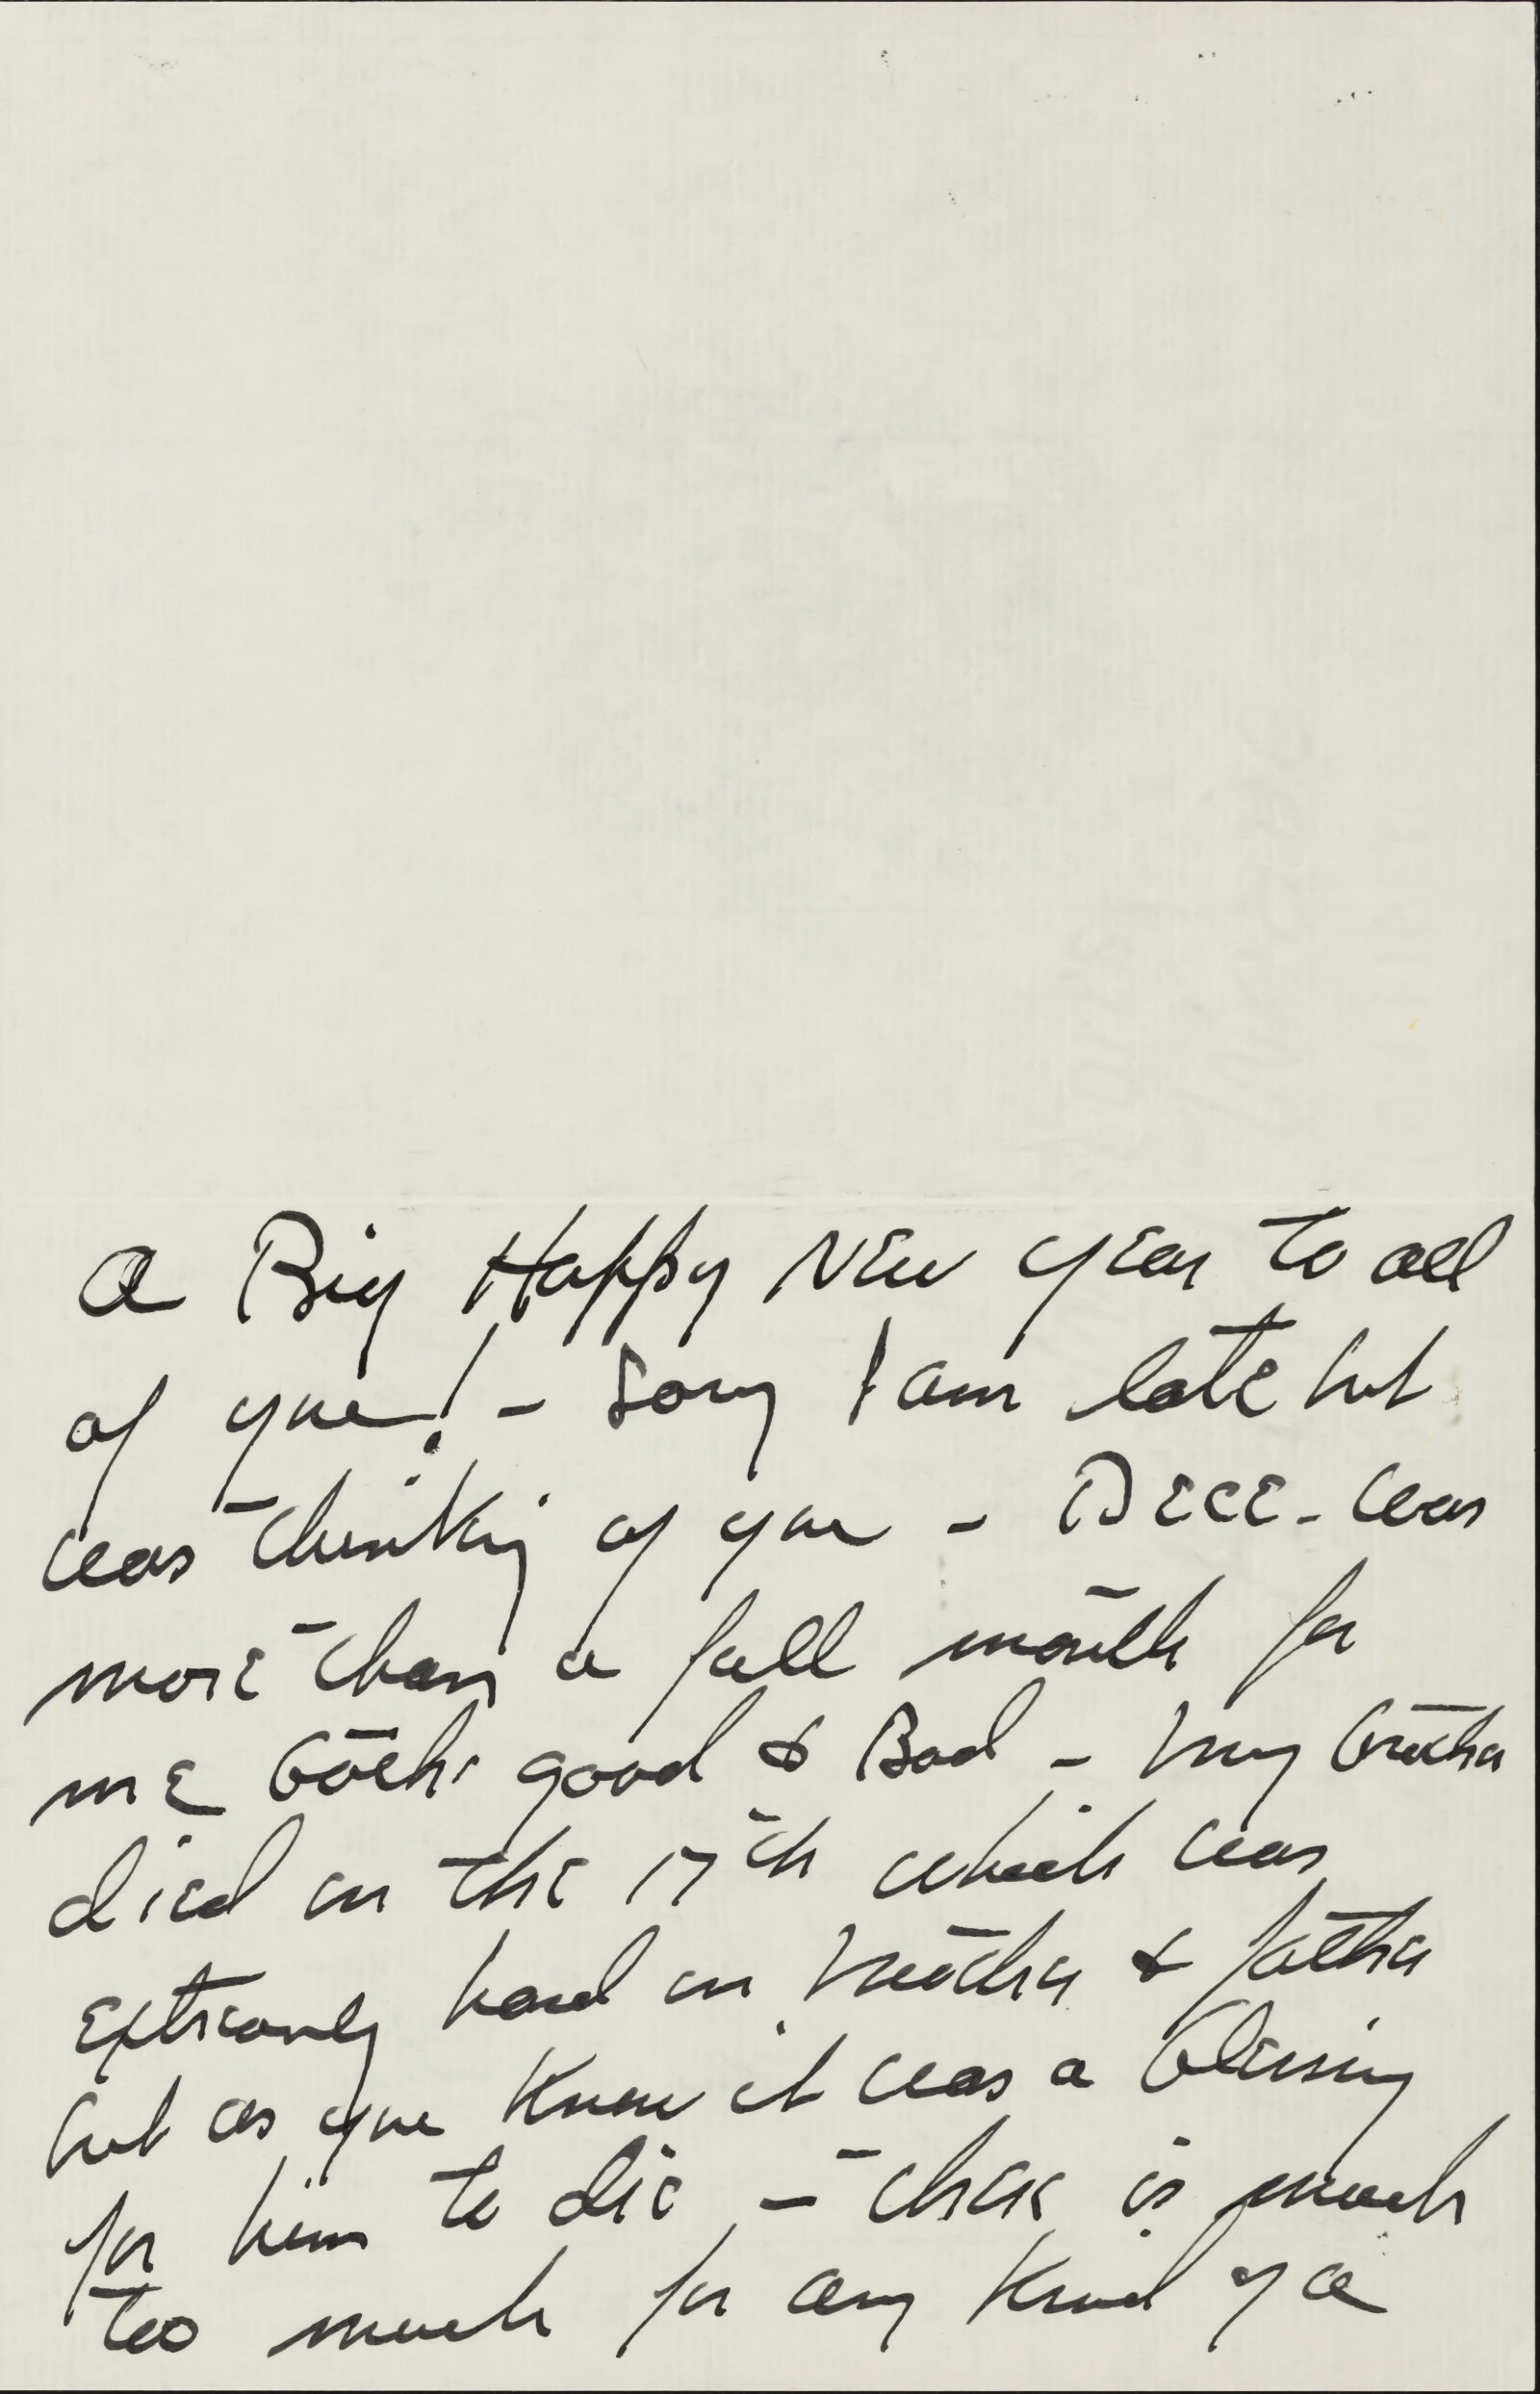 A Big Happy New Year to all
of you! - Sorry I am late but
was thinking of you - Dece. was
more than a full month for
me both good & Bad - My brother
died on the 17th which was
extremely hard on Mother & father
but as you know it was a blessing
for him to die - there is much
too much for any kind of a